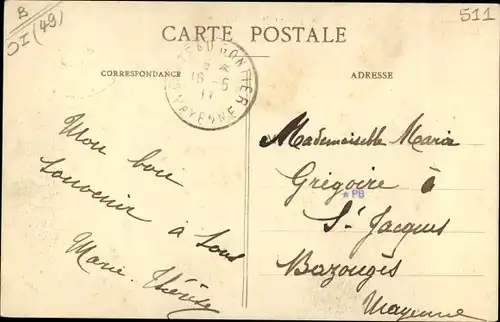 B
DI (49)
511
CARTE POSTALE
CORRESPONDANCE
ADRESSE
CHATEAU GONTIER
16 - 5
11
MAYENNE
Mon bon
souvenir
à tous
Marie-Thérèse
Mademoiselle Maria
Grégoire à
★PB
St Jacques
Bazougès
Mayenne